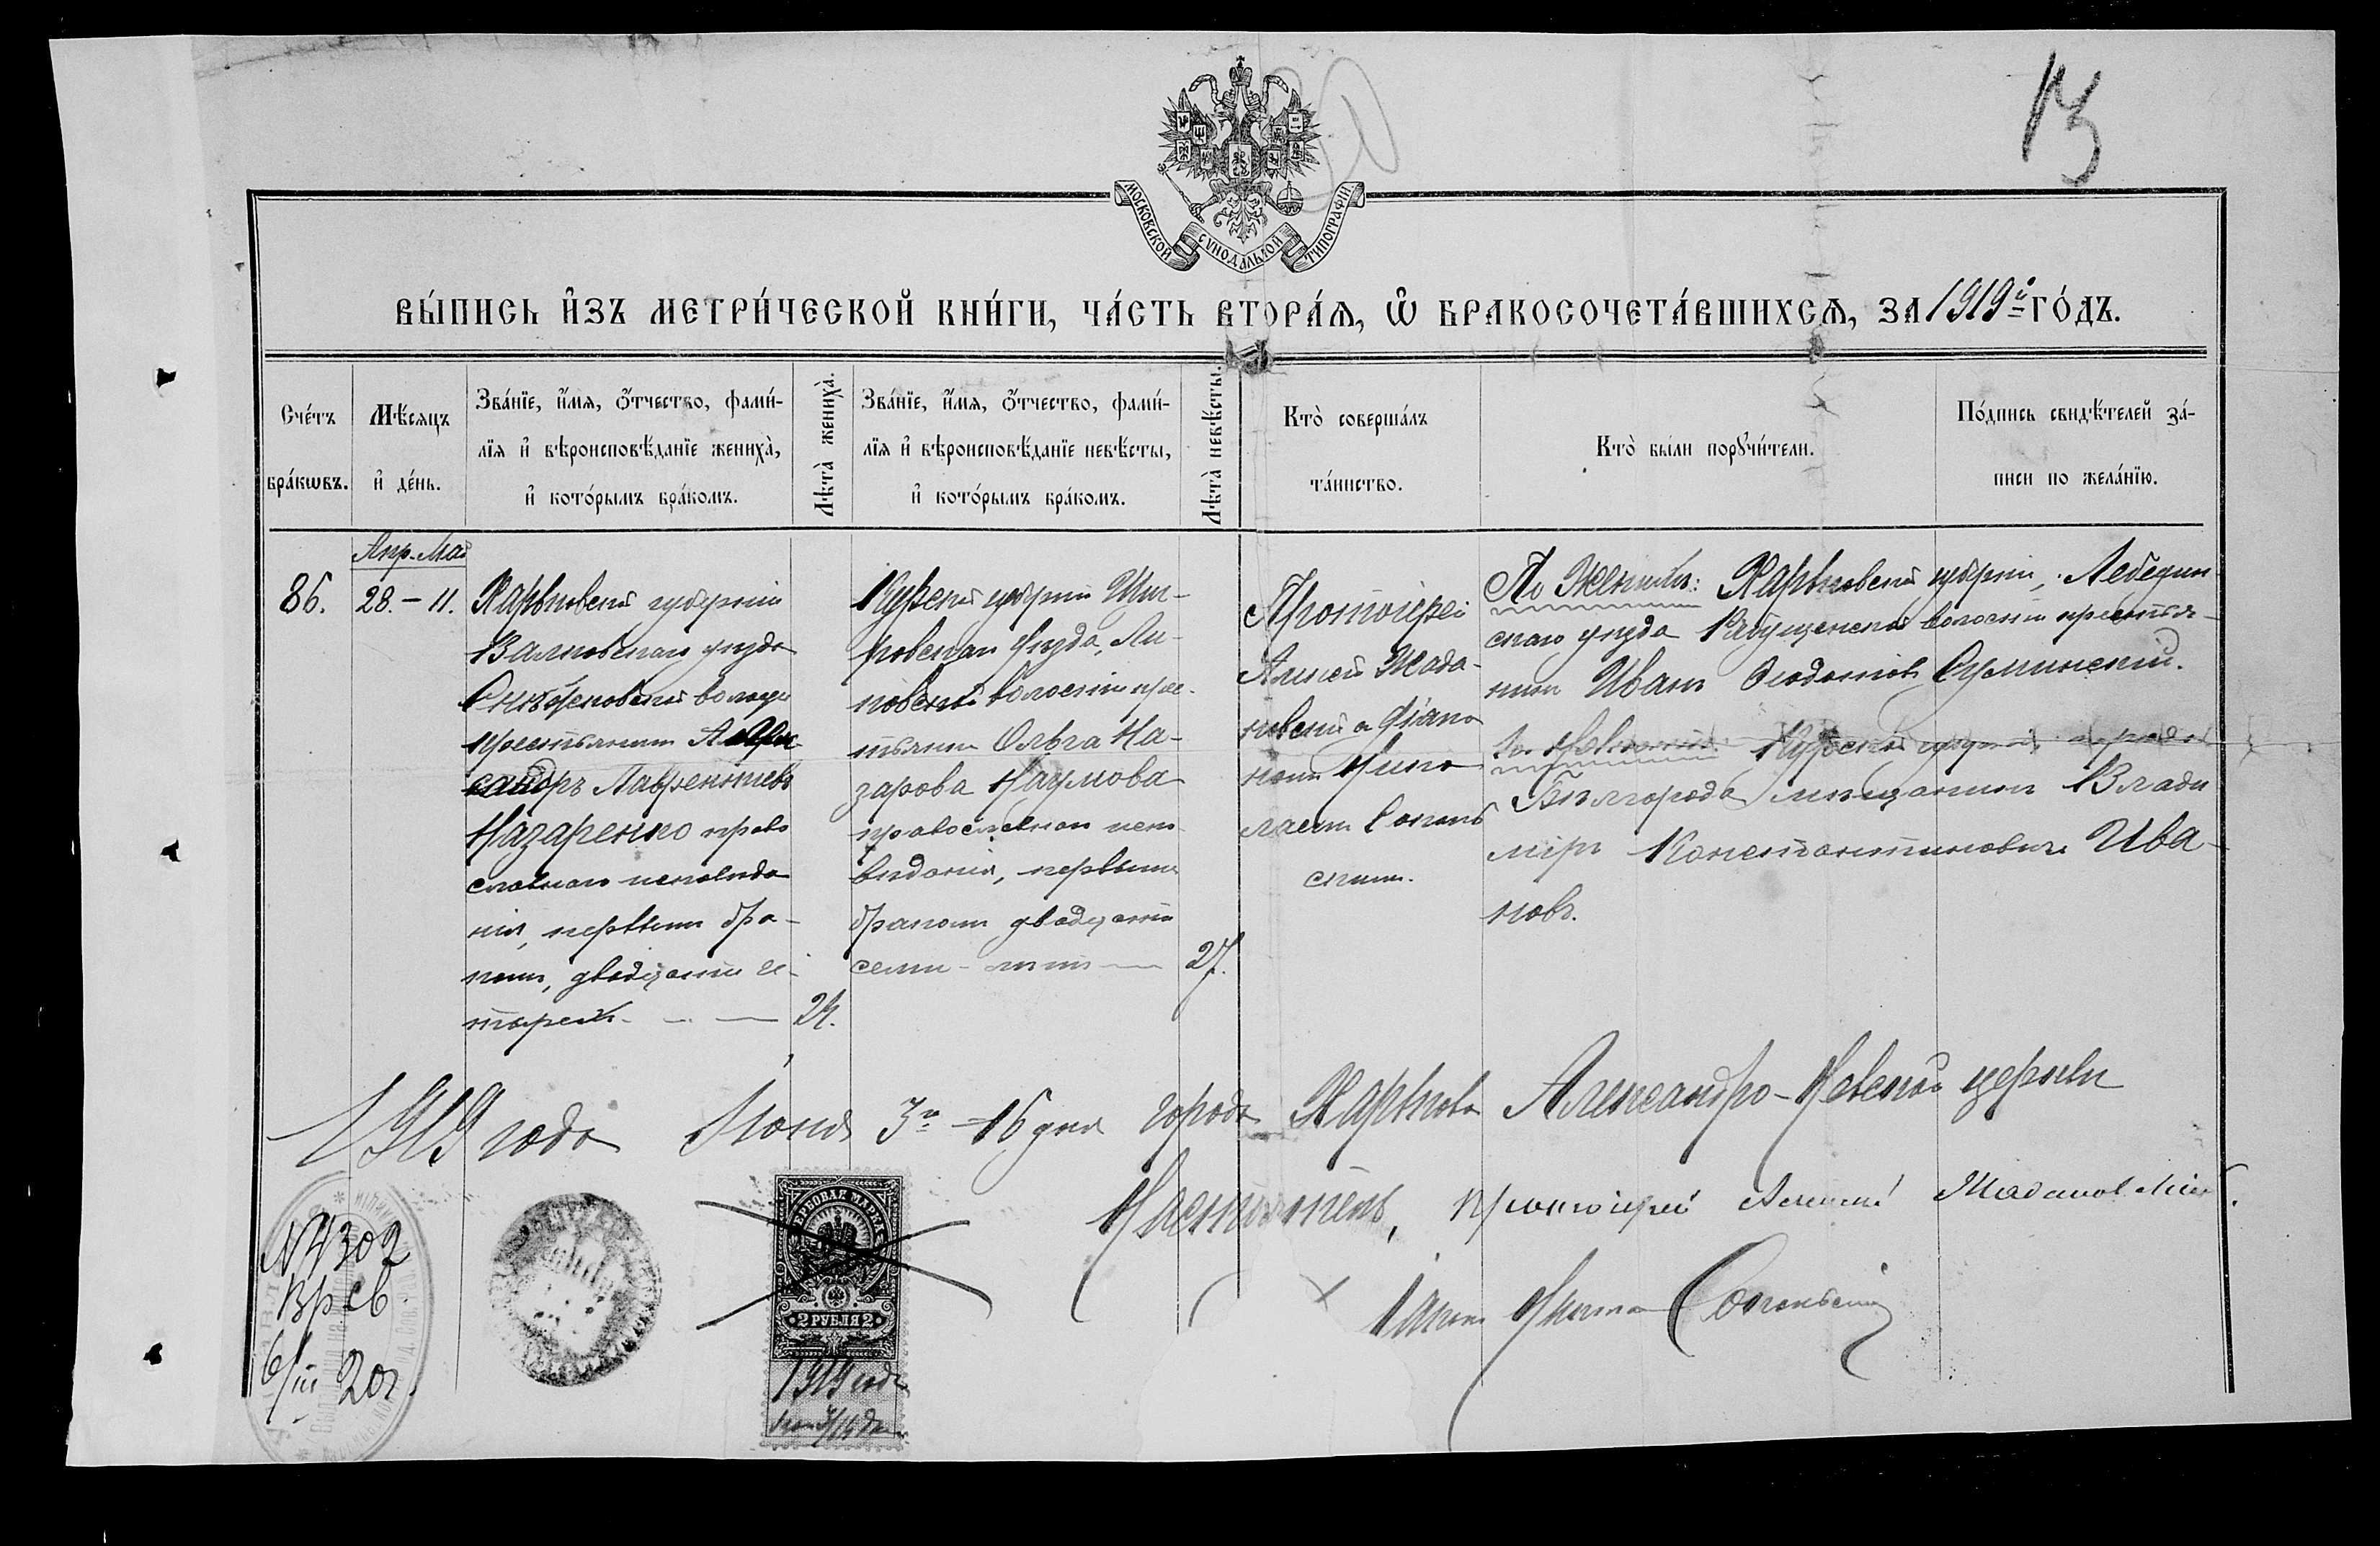 13
МОСКОВСКОЙ СѴНОДАЛЬНОЙ ТИПОГРАФІИ
ВЫ́ПИСЬ И҆ЗЪ МЕТРИ́ЧЕСКОЙ КНИ́ГИ, ЧА́СТЬ ВТОРА́Ѧ, Ѽ БРАКОСОЧЕТА́ВШИХСѦ, ЗА 1919й ГО́ДЪ.
Сче́тъ бра́кѡвъ.
Мѣ́сяцъ и҆ де́нь.
Зва́нїе, и҆́мя, ѻ҆́тчество, фами́-
лїя и҆ вѣроисповѣ́данїе жениха̀,
и҆ кото́рымъ бра́комъ.
Лѣта̀ жениха̀.
Зва́нїе, и҆́мя, ѻ҆́тчество, фами́-
лїя и҆ вѣроисповѣ́данїе невѣ́сты,
и҆ кото́рымъ бра́комъ.
Лѣта̀ невѣ́сты.
Кто̀ соверша́лъ
та́инство.
Кто̀ бы́ли порꙋчи́тели.
По́дпись свидѣ́телей за́-
писи по жела́нїю.
86.
Апр. Май
28. – 11.
Харьковской губерніи
Валковскаго уѣзда
Снѣжковской волости
крестьянинъ Алек-
сандръ Лаврентіевъ
Назаренко право
славнаго исповѣда
нія, первымъ бра-
комъ, двадцати че-
тырехъ
24.
Курской губерніи Щиг-
ровскаго уѣзда, Ли-
повской волости кре-
стьянка Ольга На-
зарова Наумова
православнаго испо
вѣданія, первымъ
бракомъ двадцати
семи лѣтъ
27.
Протоіерей
Алексѣй Жада-
новскій и діако
номъ
Сокаль
скимъ.
По Женихѣ: Харьковской губерніи, Лебедин
скаго уѣзда волости крестья-
нинъ Иванъ Ѳеодотовъ Суминскій.
По Невѣстѣ: Курской губерніи города
Бѣлгорода мѣщанинъ Влади
міръ Константиновичъ Ива-
новъ.
1919 года Іюня 3го – 16 дня города Харькова Александро-Невской церкви
Настоятель, протоіерей Алексѣй Жадановскій.
N 4302
6/III 20г.
ГЕРБОВАЯ МАРКА
2 РУБЛЯ 2
1919 года